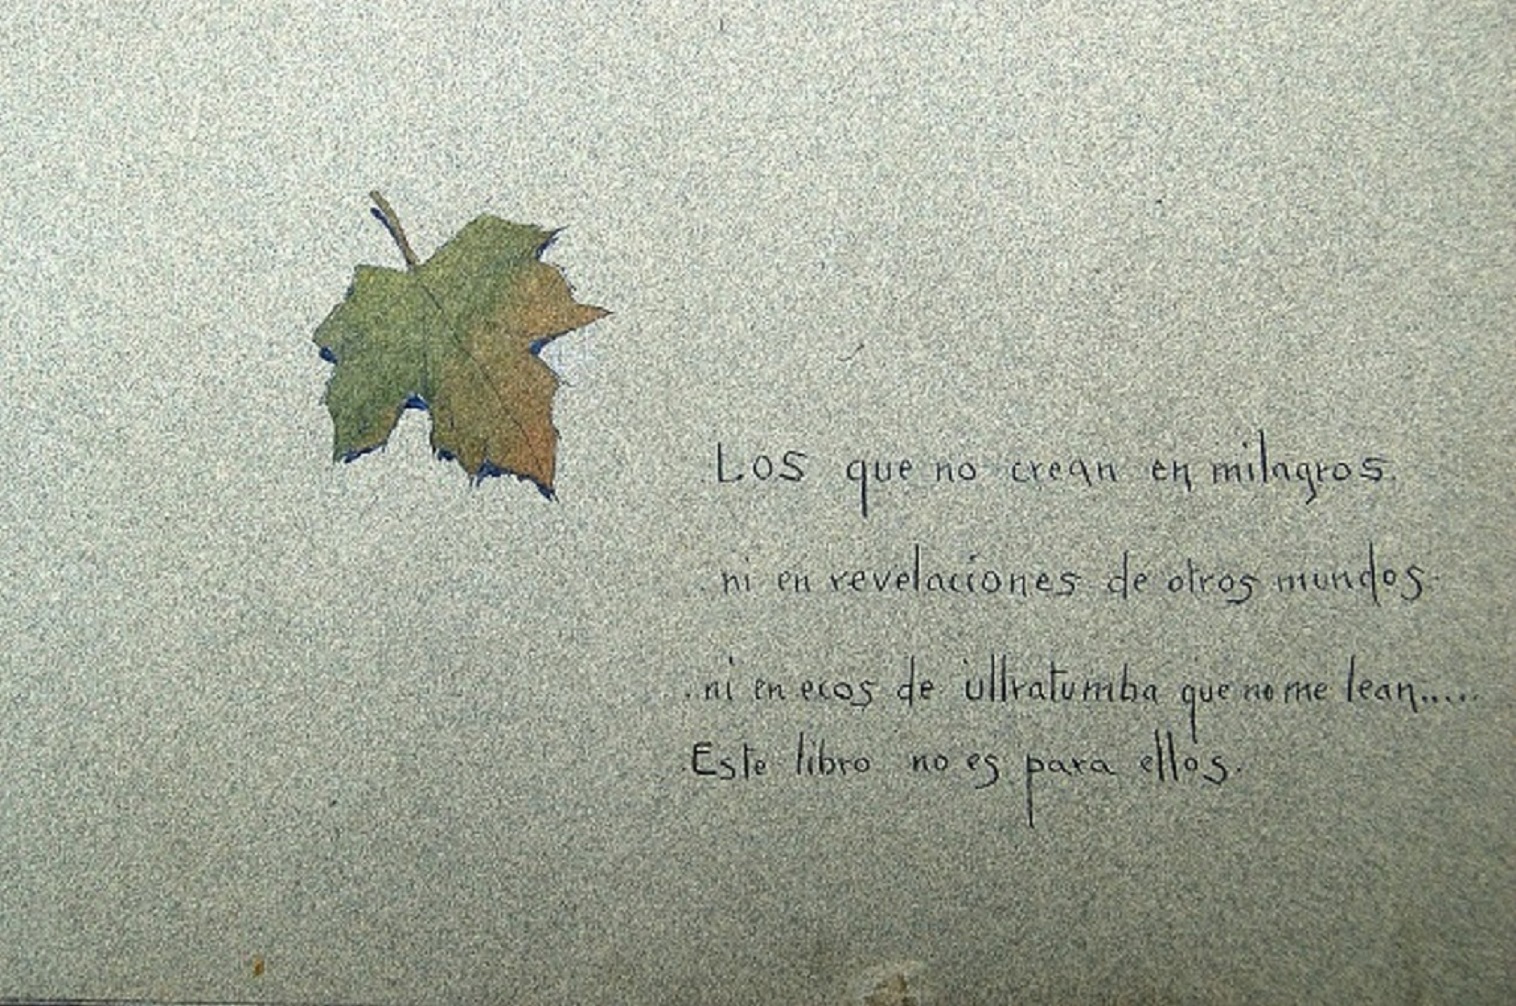 Los que no crean en milagros.
ni en revelaciones de otros mundos.
ni en ecos de ultratumba que no me lean.....
Este libro no es para ellos.